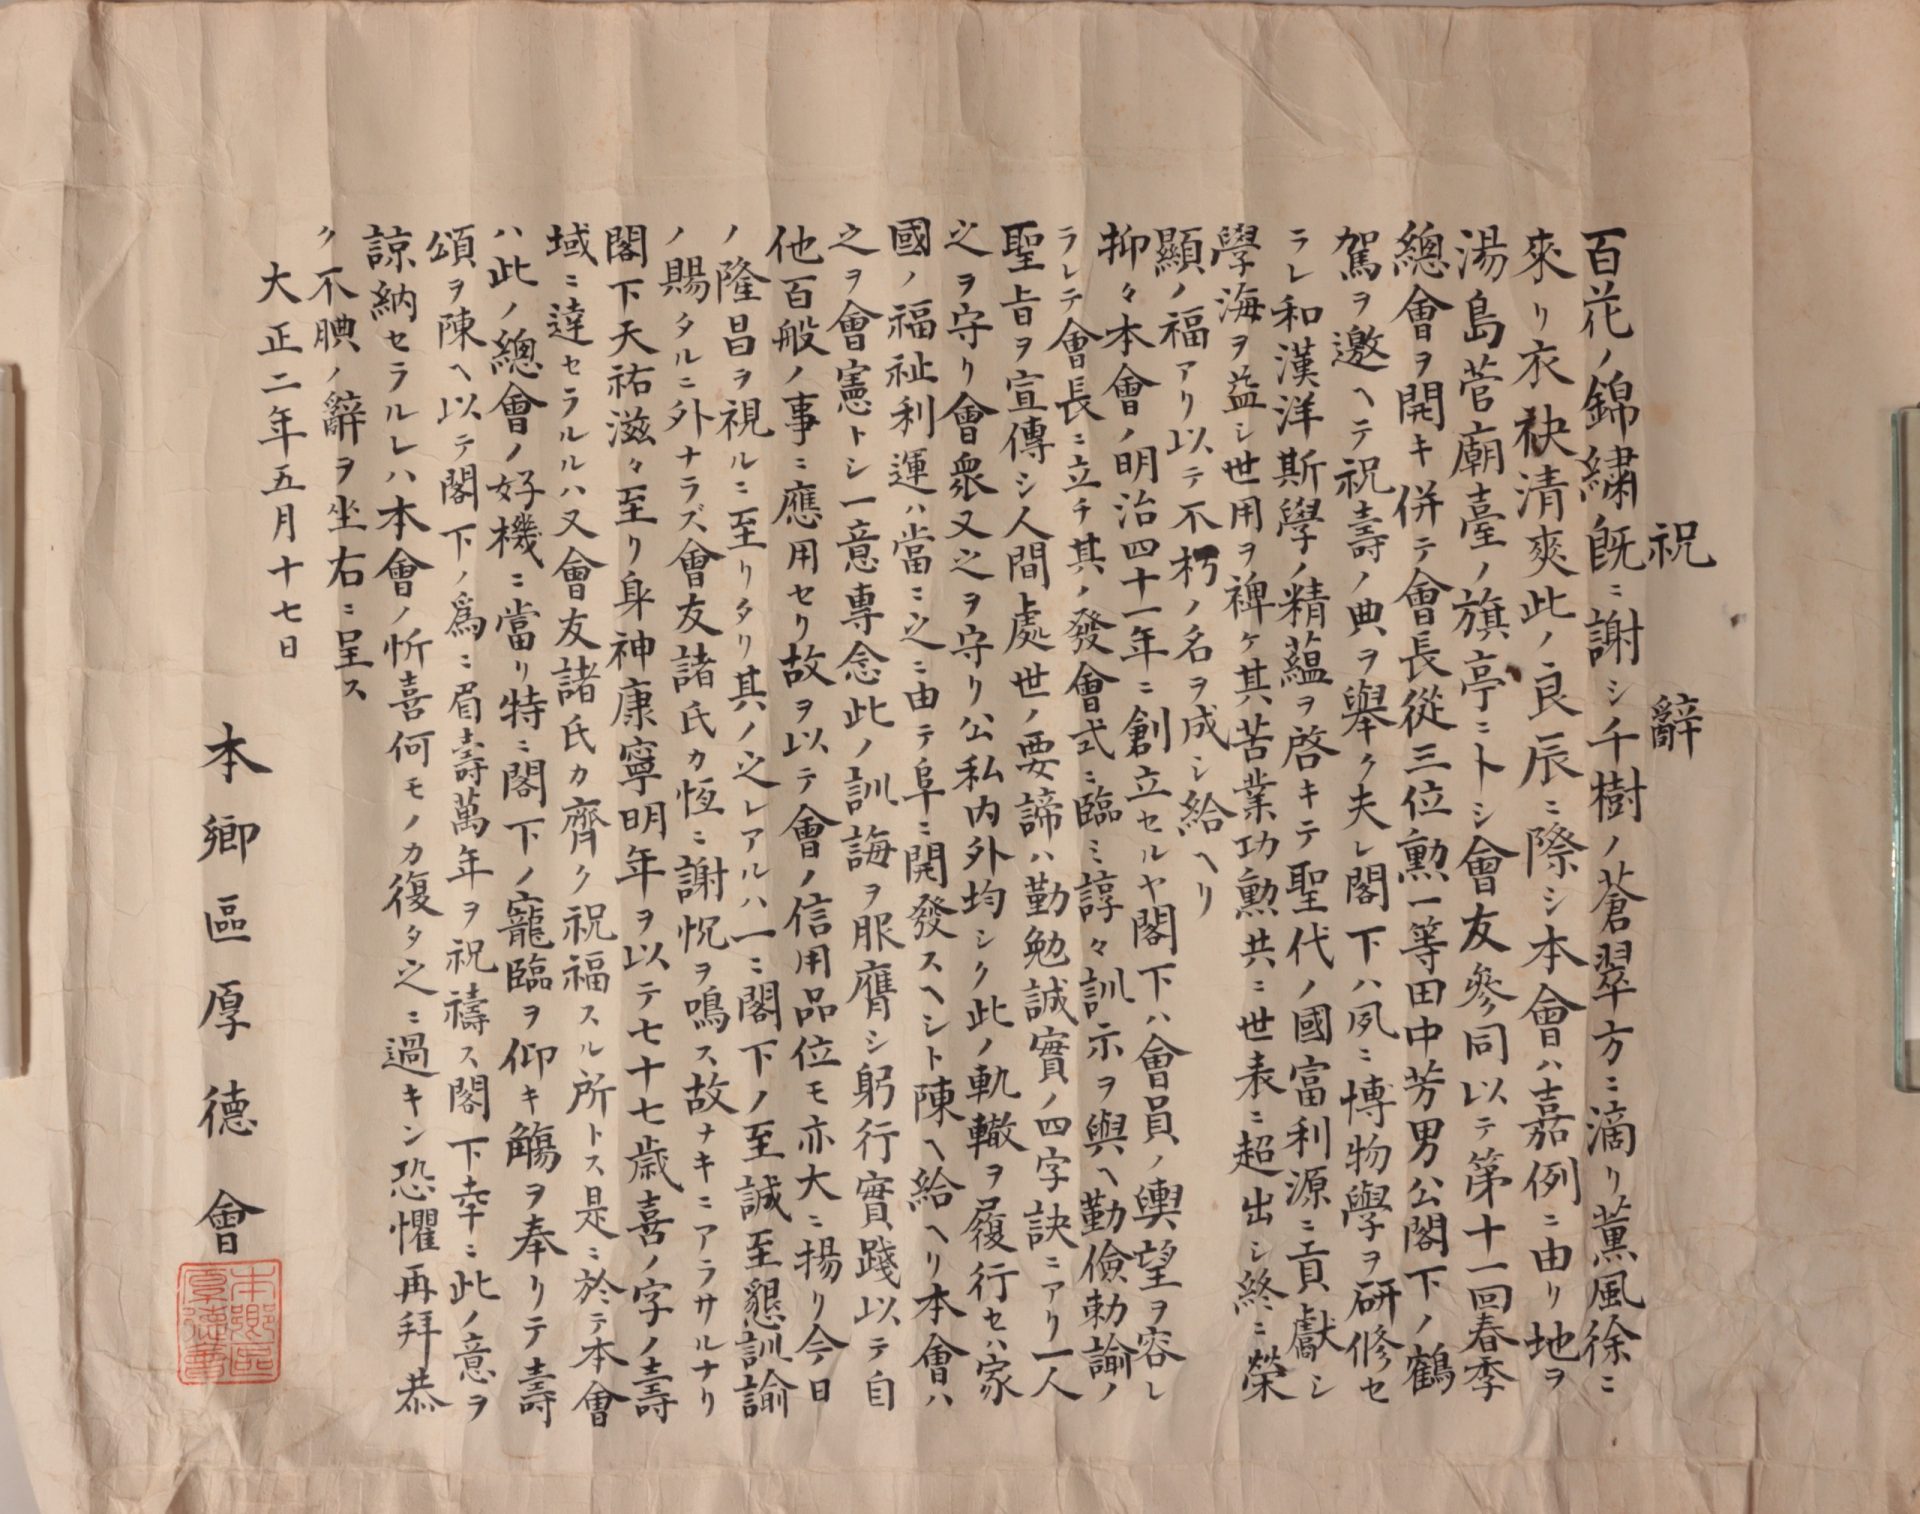 祝辭
百花ノ錦繡既ニ謝シ千樹ノ蒼翠方ニ滴リ薫風徐ニ
來リ衣袂清爽此ノ良辰ニ際シ本會ハ嘉例ニ由リ地ヲ
湯島菅廟臺ノ旗亭ニトシ會友參同以テ第十一回春季
總會ヲ開キ併テ會長從三位勲一等田中芳男公閣下ノ鶴
駕ヲ邀ヘテ祝壽ノ典ヲ舉ク夫レ閣下ハ夙ニ博物學ヲ研修セ
ラレ和漢洋斯學ノ精蘊ヲ啓キテ聖代ノ國富利源ニ貢獻シ
學海ヲ益シ世用ヲ裨ケ其苦業功勲共ニ世表ニ超出シ終ニ榮
顯ノ福アリ以テ不朽ノ名ヲ成シ給ヘリ
抑々本會ノ明治四十一年ニ創立セルヤ閣下ハ會員ノ輿望ヲ容レ
ラレテ會長ニ立チ其ノ發會式ニ臨ミ諄々訓示ヲ與ヘ勤儉勅諭ノ
聖旨ヲ宣傳シ人間處世ノ要諦ハ勤勉誠實ノ四字訣ニアリ一人
之ヲ守リ會衆又之ヲ守リ公私内外均シク此ノ軌轍ヲ履行セハ家
國ノ福祉利運ハ當ニ之ニ由テ阜ニ開發スヘシト陳ヘ給ヘリ本會ハ
之ヲ會憲トシ一意專念此ノ訓誨ヲ服膺シ躬行實踐以テ自
他百般ノ事ニ應用セリ故ヲ以テ會ノ信用品位モ亦大ニ揚リ今日
ノ隆昌ヲ視ルニ至リタリ其ノ之レアルハ一ニ閣下ノ至誠至懇訓諭
ノ賜タルニ外ナラズ會友諸氏カ恆ニ謝悦ヲ鳴ス故ナキニアラサルナリ
閣下天祐滋々至リ身神康寧明年ヲ以テ七十七歳喜ノ字ノ壽
域ニ達セラルルハ又會友諸氏カ齊ク祝福スル所トス是ニ於テ本會
ハ此ノ總會ノ好機ニ當リ特ニ閣下ノ寵臨ヲ仰キ觴ヲ奉リテ壽
頌ヲ陳ヘ以テ閣下ノ爲ニ眉壽萬年ヲ祝禱ス閣下幸ニ此ノ意ヲ
諒納セラルレハ本會ノ忻喜何モノカ復タ之ニ過キン恐懼再拜恭
ク不腆ノ辭ヲ坐右ニ呈ス
大正二年五月十七日
本郷區厚德會
本郷區厚德會